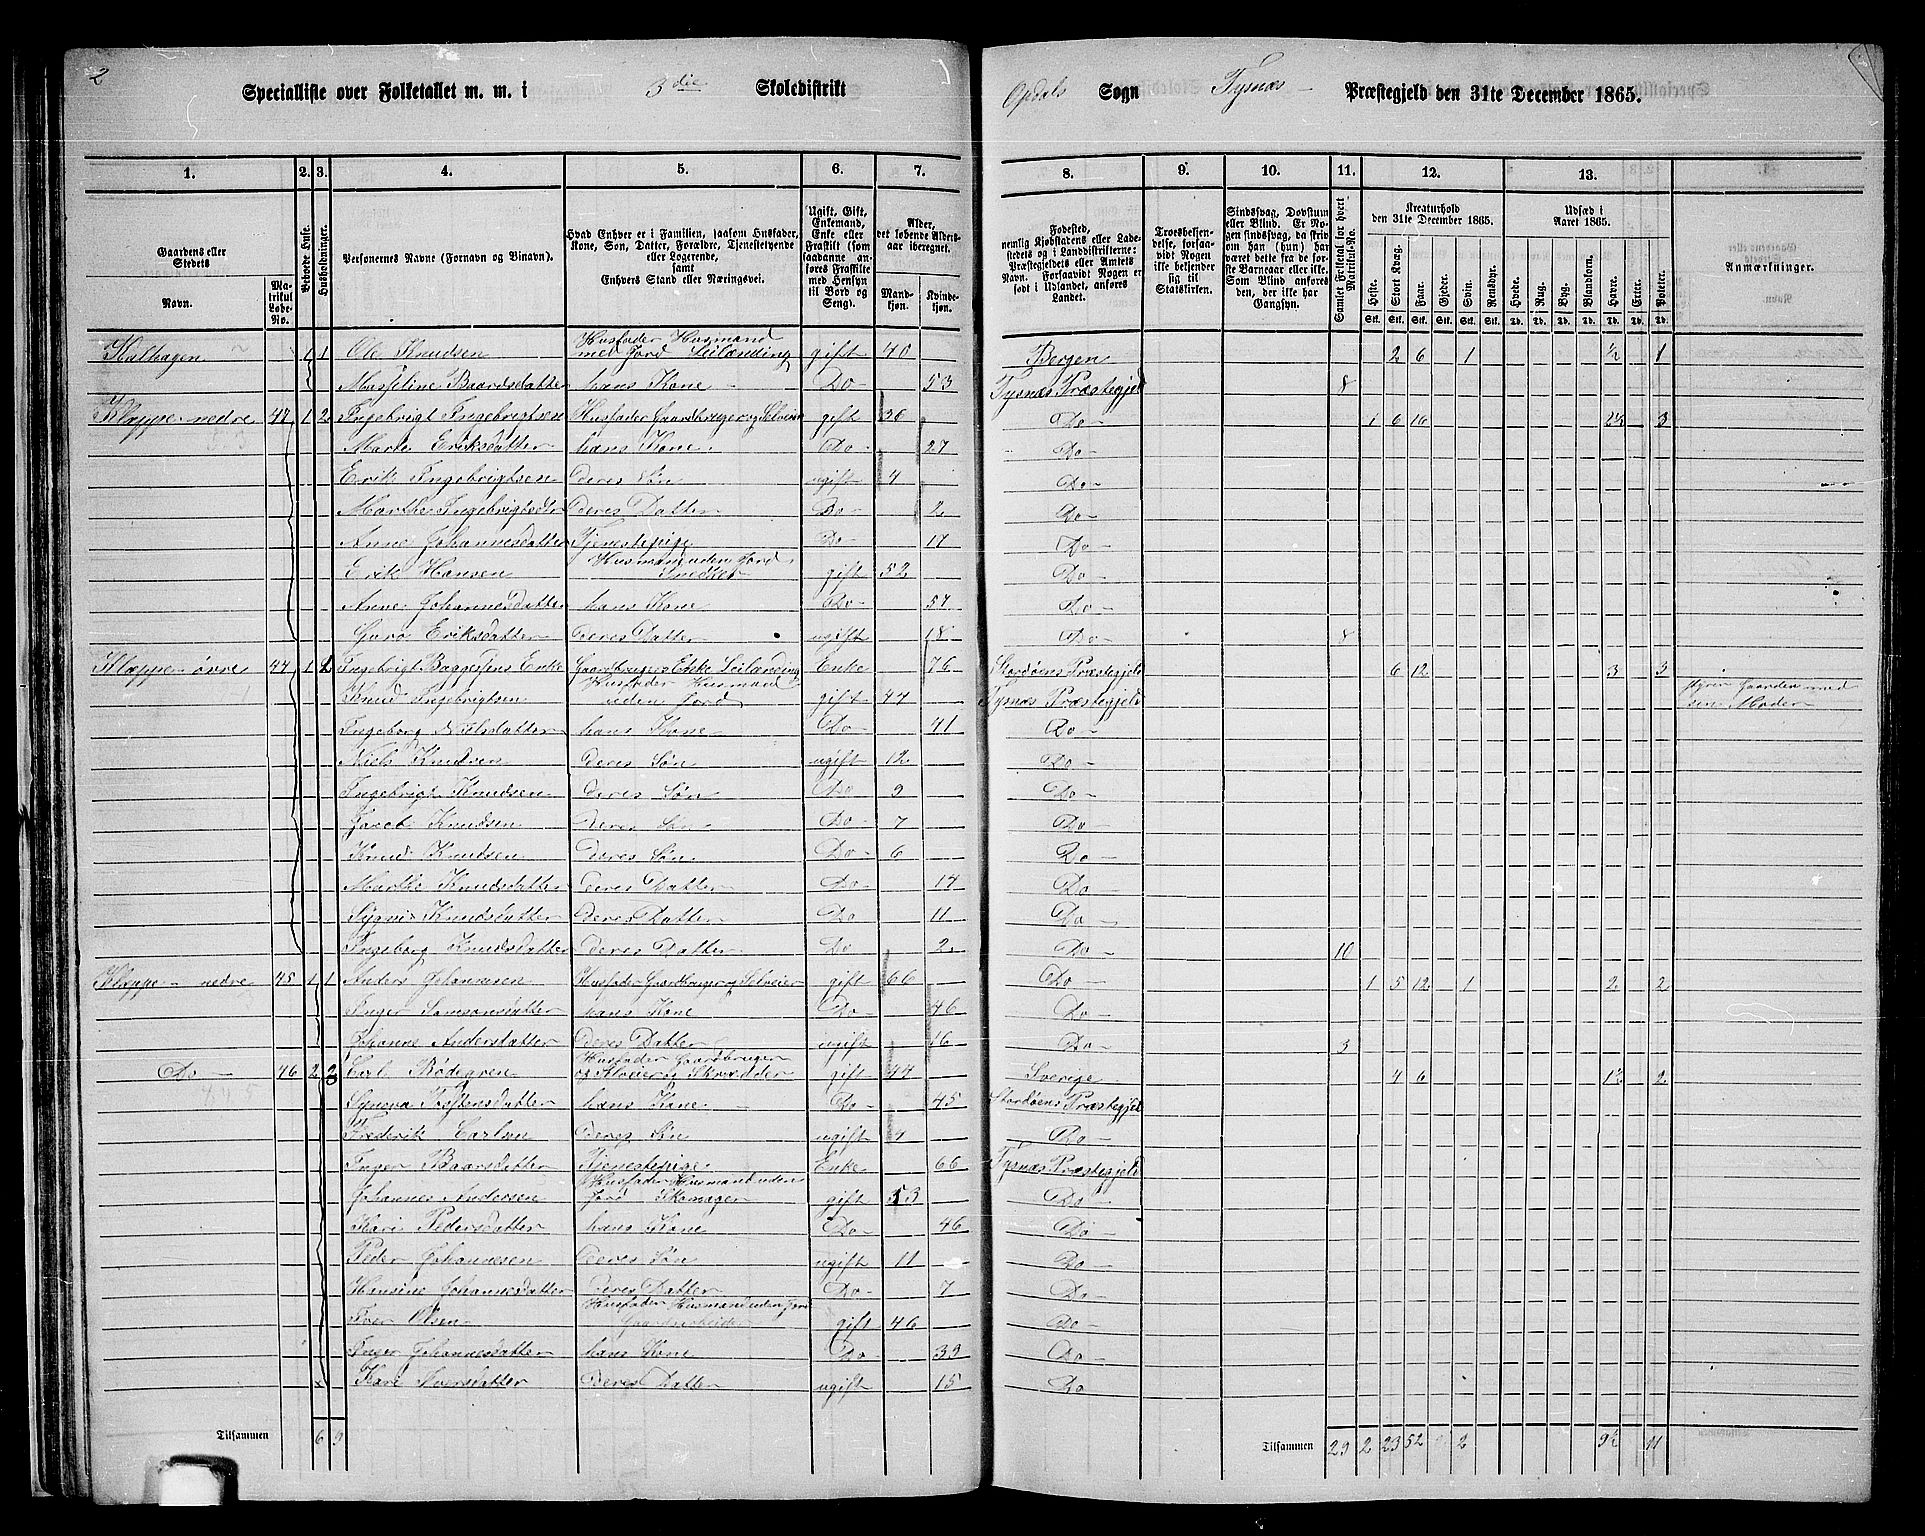 2
Specialliste over Folketallet m. m. i 3die Skoledistrikt
Opdals Sogn Tysnæs Præstegjeld den 31te December 1865.
1. 2. 3. 4. 5. 6. 7.
8. 9. 10. 11. 12. 13.
Gaardens eller Stedets
Navn.
Matrikul Løbe-No.
Beboede Huse.
Husholdninger.
Personernes Navne (Fornavn og Binavn).
Hvad Enhver er i Familien, saasom Husfader, Kone, Søn, Datter, Forældre, Tjenestetyende eller Logerende, samt Enhvers Stand eller Næringsvei.
Ugift, Gift, Enkemand, Enke eller Fraskilt (som saadanne anføres Fraskilte med Hensyn til Bord og Seng).
Alder, det løbende Aldersaar iberegnet.
Mandkjøn. Kvindekjøn.
Fødested, nemlig Kjøbstadens eller Ladestedets og i Landdistrikterne: Præstegjeldets eller Amtets Navn. Forsaavidt Nogen er født i Udlandet, anføres Landet.
Troesbekjendelse, forsaavidt Nogen ikke bekjender sig til Statskirken.
Sindssvag, Døvstum eller Blind. Er Nogen sindssvag, da skrives om han (hun) har været dette fra de første Barneaar eller ikke. Som Blind anføres den, der ikke har Gangsyn.
Samlet Folketal for hvert Matrikul-No.
Kreaturhold den 31te December 1865.
Heste. Stort Kvæg. Faar. Gjeder. Svin. Rensdyr.
Udsæd i Aaret 1865.
Hvede. Rug. Byg. Blandkorn. Havre. Erter. Poteter.
Anmærkninger.
1 1 Ole Knudsen Husfader Husmand med Jord Leilænding gift 40 Bergen 2 6 1 ½ 1
Baardsdatter hans Kone Do 53 Tysnæs Præstegjeld 8
Klappe nedre 47 1 2 Ingebrigt Ingebrigtsen Husfader Gaardbruger og Selveier gift 30 Do 1 6 16 2½ 3
Marte Eriksdatter hans Kone Do 27 Do
Erik Ingebrigtsen deres Søn ugift 4 Do
Marthe Ingebrigtsdtr deres Datter Do 2 Do
Anne Johannesdatter Tjenestepige Do 17 Do
Erik Hansen Husmand uden Jord Snedker gift 52 Do
Anne Johannesdatter hans Kone Do 57 Do
Guro Eriksdatter deres Datter ugift 18 Do 8
Klappe øvre 44 1 2 Ingebrigt Baggesens Enke Gaardbrugers Enke Leilænding Enke 76 Stordøens Præstegjeld 6 12 3 3
Knud Ingebrigtsen Husfader Husmand uden Jord gift 44 Tysnæs Præstegjeld styrer Gaarden med sin Moder
Ingeborg Nilsdatter hans Kone Do 41 Do
Niels Knudsen deres Søn ugift 12 Do
Ingebrigt Knudsen deres Søn Do 9 Do
Jacob Knudsen deres Søn Do 7 Do
Knud Knudsen deres Søn Do 6 Do
Marthe Knudsdatter deres Datter Do 14 Do
Knudsdatter deres Datter Do 11 Do
Ingeborg Knudsdatter deres Datter Do 2 Do 10
Klappe nedre 45 1 1 Anders Johannesen Husfader Gaardbruger og Selveier gift 66 Do 1 5 12 1 2 2
Inger Samsonsdatter hans Kone Do 46 Do
Johanne Andersdatter deres Datter ugift 16 Do 3
Do 46 2 3 Carl Rødegren Husfader Gaardbruger og Selveier Skrædder gift 44 Sverige 4 6 1½ 2
Synneva Tostensdatter hans Kone Do 45 Stordøens Præstegjeld
Frederik Carlsen deres Søn ugift 4 Do
Inger Baarsdatter Tjenestepige Enke 66 Tysnæs Præstegjeld
Johannes Andersen Husfader Husmand uden Jord Skomager gift 53 Do
Kari Pedersdatter hans Kone Do 46 Do
Peder Johannesen deres Søn ugift 11 Do
Hansine Johannesdatter deres Datter Do 7 Do
Iver Olsen Husfader Husmand uden Jord Gaardarbeider gift 46 Do
Inger Johannesdatter hans Kone Do 39 Do
Kari Iversdatter deres Datter ugift 15 Do
Tilsammen 6 9
Tilsammen 29 2 23 52 2 9½ 11